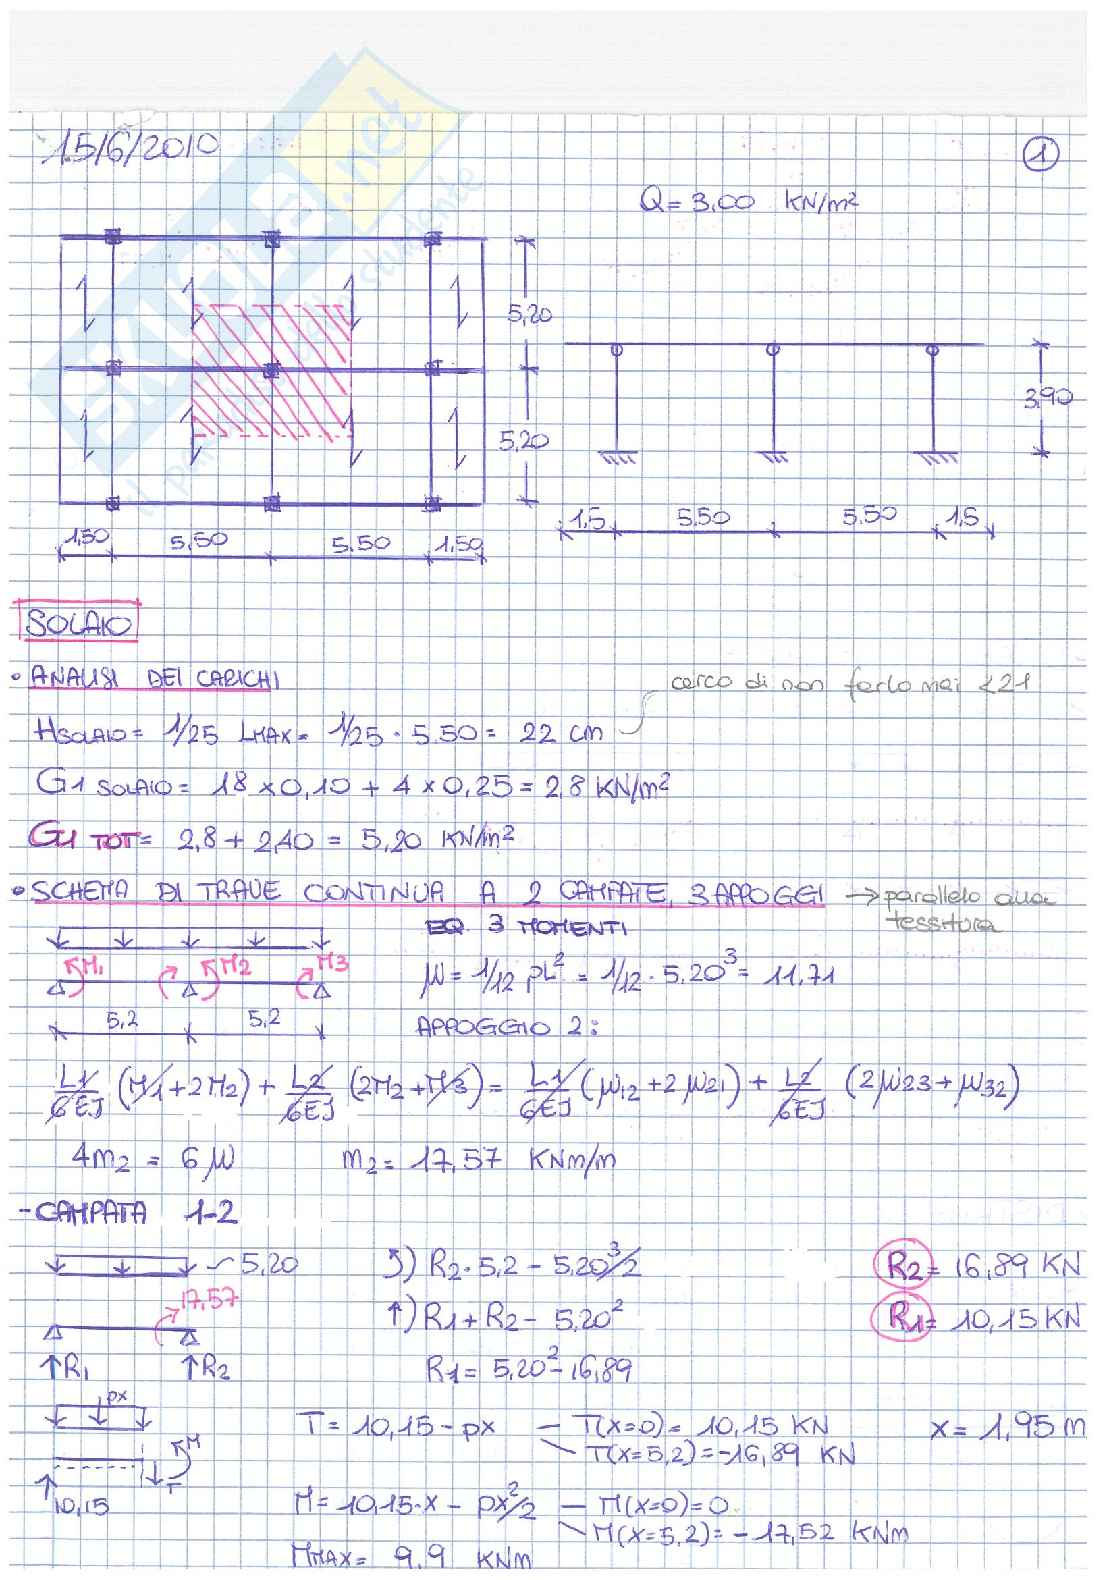 15/6/2010
1
Q = 3,00 KN/m²
5,20
5,20
3,90
1,50 5,50 5,50 1,50
1,5 5,50 5,50 1,5
SKUOLA.net
SOLAIO
• ANALISI DEI CARICHI
cerco di non farlo mai < 21
HSOLAIO = 1/25 LMAX = 1/25 · 5,50 = 22 cm
G1 SOLAIO = 18 x 0,10 + 4 x 0,25 = 2,8 KN/m²
G1 TOT = 2,8 + 2,40 = 5,20 KN/m²
• SCHEMA DI TRAVE CONTINUA A 2 CAMPATE, 3 APPOGGI → parallelo alla
tessitura
EQ. 3 MOMENTI
M1 M2 M3
μ = 1/12 pL² = 1/12 · 5,20³ = 11,71
5,2 5,2
APPOGGIO 2:
L1/6EJ (M1 + 2M2) + L2/6EJ (2M2 + M3) = L1/6EJ (μ12 + 2μ21) + L2/6EJ (2μ23 + μ32)
4m2 = 6μ m2 = 17,57 KNm/m
- CAMPATA 1-2
5,20
R2 · 5,2 - 5,20³/2
R2 = 16,89 KN
17,57
↑) R1 + R2 - 5,20²
R1 = 10,15 KN
↑R1 ↑R2
R1 = 5,20² - 16,89
px
T = 10,15 - px — T(x=0) = 10,15 KN x = 1,95 m
T(x=5,2) = -16,89 KN
M
T
10,15
M = 10,15·x - px²/2 — M(x=0) = 0
M(x=5,2) = -17,52 KNm
MMAX = 9,9 KNm